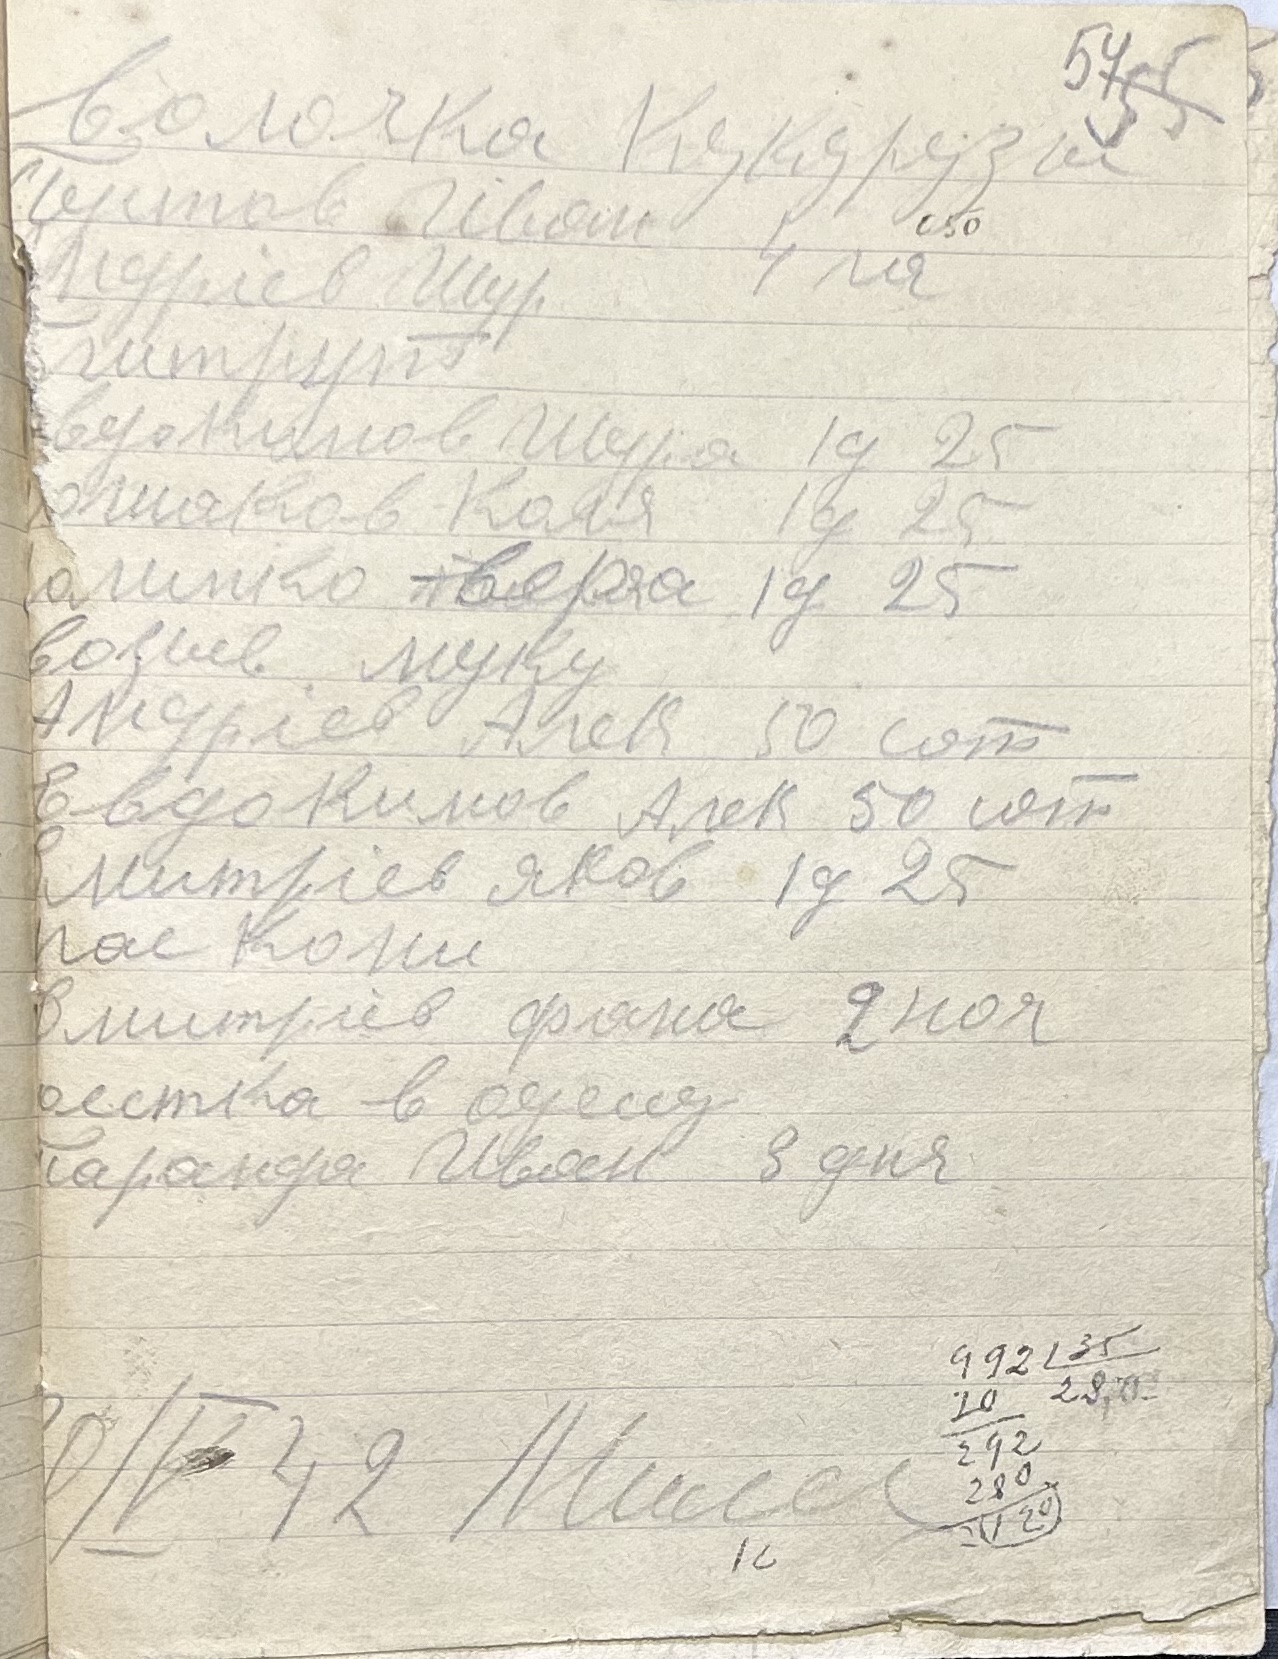 54 55
Волочка Кукурузы
Шутов Иван 4 га 050
Андріев Шур
вдокимов Шура 1д 25
ошаков Коля 1д 25
алипко верза 1д 25
возив муку
Андріев Алек 50 сот
Евдокимов Алек 50 сот
Дмитріев яков 1д 25
пас Кони
Дмитріев фана 2 ноя
оестка в одесу
Таранфа Иван 3 дня
992 35
70 28,
292
280
120
/IV 42
10